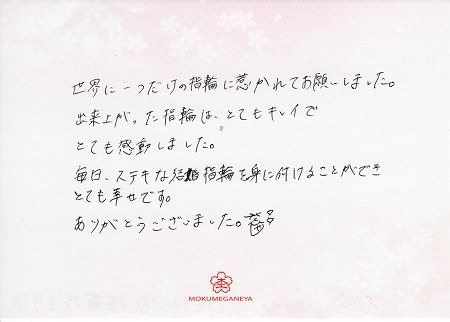 世界に一つだけの指輪に惹かれてお願いしました。
出来上がった指輪は、とてもキレイで
とても感動しました。
毎日、ステキな結婚指輪を身に付けることができ
とても幸せです。
ありがとうございました。
MOKUMEGANEYA